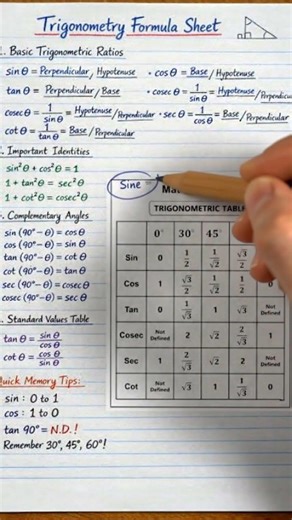 Trigonometry Formula Sheet
. Basic Trigonometric Ratios
sin θ = Perpendicular/Hypotenuse • cos θ = Base/Hypotenuse
tan θ = Perpendicular/Base • cosec θ = 1/sin θ = Hypotenuse/Perpendicu
cosec θ = 1/sin θ = Hypotenuse/Perpendicular • sec θ = 1/cos θ = Base/Perpendicular
cot θ = 1/tan θ = Base/Perpendicular
. Important Identities
sin²θ + cos²θ = 1
1 + tan²θ = sec²θ
1 + cot²θ = cosec²θ
. Complementary Angles
sin (90° − θ) = cos θ
cos (90° − θ) = sin θ
tan (90° − θ) = cot θ
cot (90° − θ) = tan θ
sec (90° − θ) = cosec θ
cosec (90° − θ) = sec θ
. Standard Values Table
tan θ = sin θ/cos θ
cot θ = cos θ/sin θ
Quick Memory Tips:
sin : 0 to 1
cos : 1 to 0
tan 90° = N.D.!
Remember 30°, 45°, 60°!
Sine
Ma
TRIGONOMETRIC TABL
0° 30° 45°
Sin 0 1/2 1/√2 √3/2
Cos 1 √3/2 1/√2 1/2 0
Tan 0 1/√3 1 √3 Not Defined
Cosec Not Defined 2 √2 2/√3 1
Sec 1 2/√3 √2 2 Not Defined
Cot Not Defined √3 1 1/√3 0